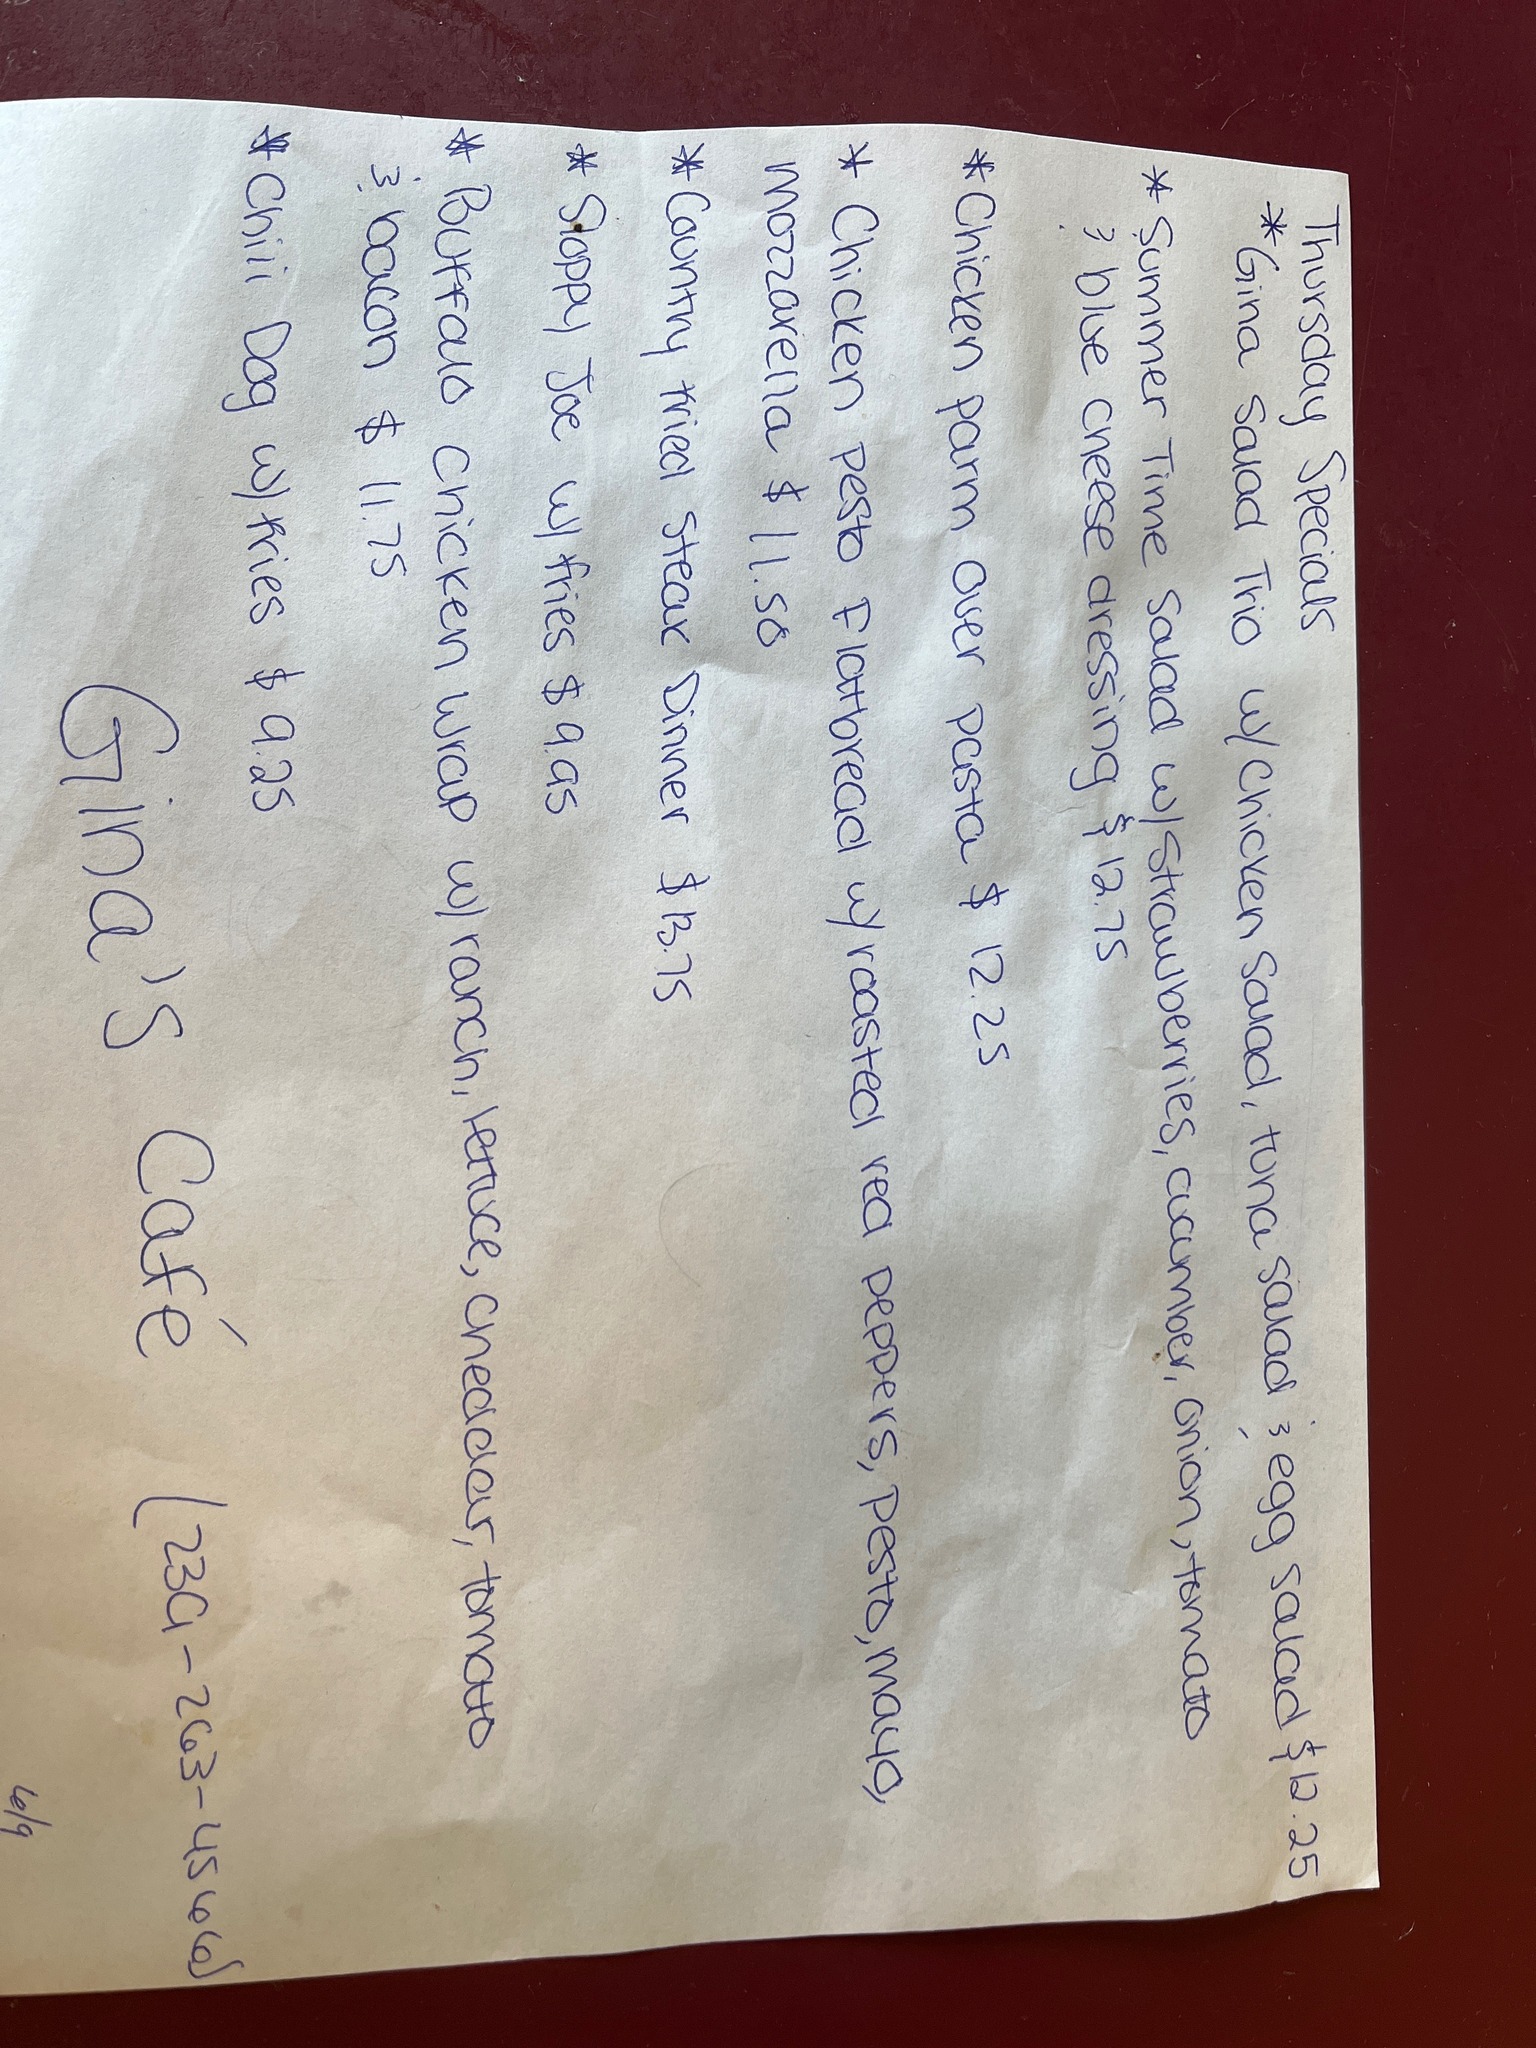 Thursday Specials
* Gina Salad Trio w/ chicken salad, tuna salad & egg salad $12.25
* Summer Time Salad w/ strawberries, cucumber, onion, tomato
& blue cheese dressing $12.75
* Chicken parm over pasta $ 12.25
* Chicken pesto Flattbread w/ roasted red peppers, pesto, mayo,
mozzarella $ 11.50
* Country fried steak Dinner $13.75
* Sloppy Joe w/ fries $ 9.95
* Buffalo Chicken wrap w/ ranch, lettuce, cheddar, tomatto
& bacon $ 11.75
* Chili Dog w/ fries $ 9.25
Gina's Café (239-263-4566)
6/9